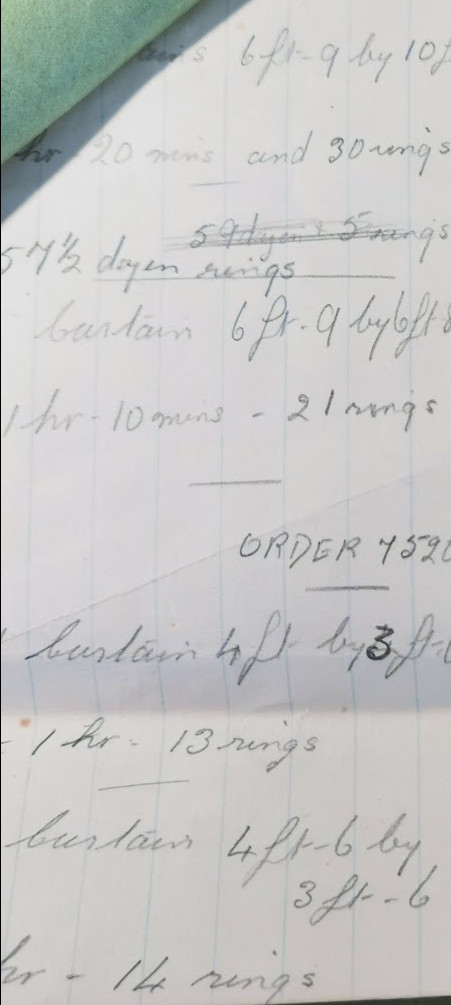 6ft-9 by 10f
hr-20 mins and 30 rings
59 dozen 5 rings
57½ dozen rings
Curtain 6ft.9 by 6ft8
1 hr-10 mins - 21 rings
ORDER 7520
Curtain 4ft by 3ft-
- 1 hr - 13 rings
Curtain 4ft-6 by
3ft-6
hr - 14 rings